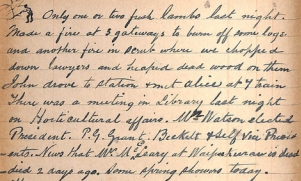 Only one or two fresh lambs last night.
Made a fire at 3 gateways to burn off some logs
and another fire in scrub where we chopped
down lawyers and heaped dead wood on them
John drove to station & met Alice at 7 train
There was a meeting in Library last night
on Horticultural affairs. Mr Watson elected
President. P.G. Grant, Beckett & Self Vice Presid
ents. News that Mrs McLeary at Waipahurau is dead
died 2 days ago. Some spring showers today.